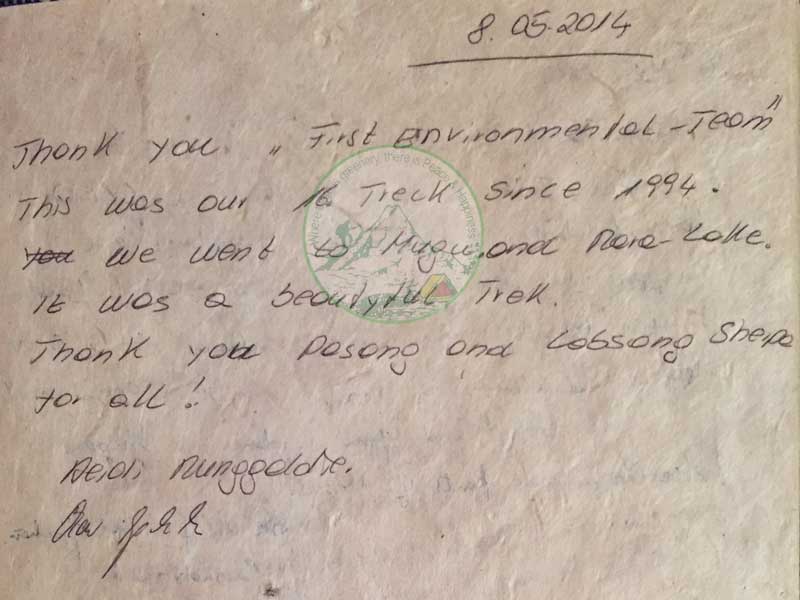 8.05.2014
Thank you „First Environmental-Team"
This was our 16 Treck since 1994.
You we went to Mugu, and Rara-Lake.
it was a beautyful Trek.
Thank you Pasang and Lobsang Sherpa
for all!
Heidi
Where greenery, there is Peace & Happiness